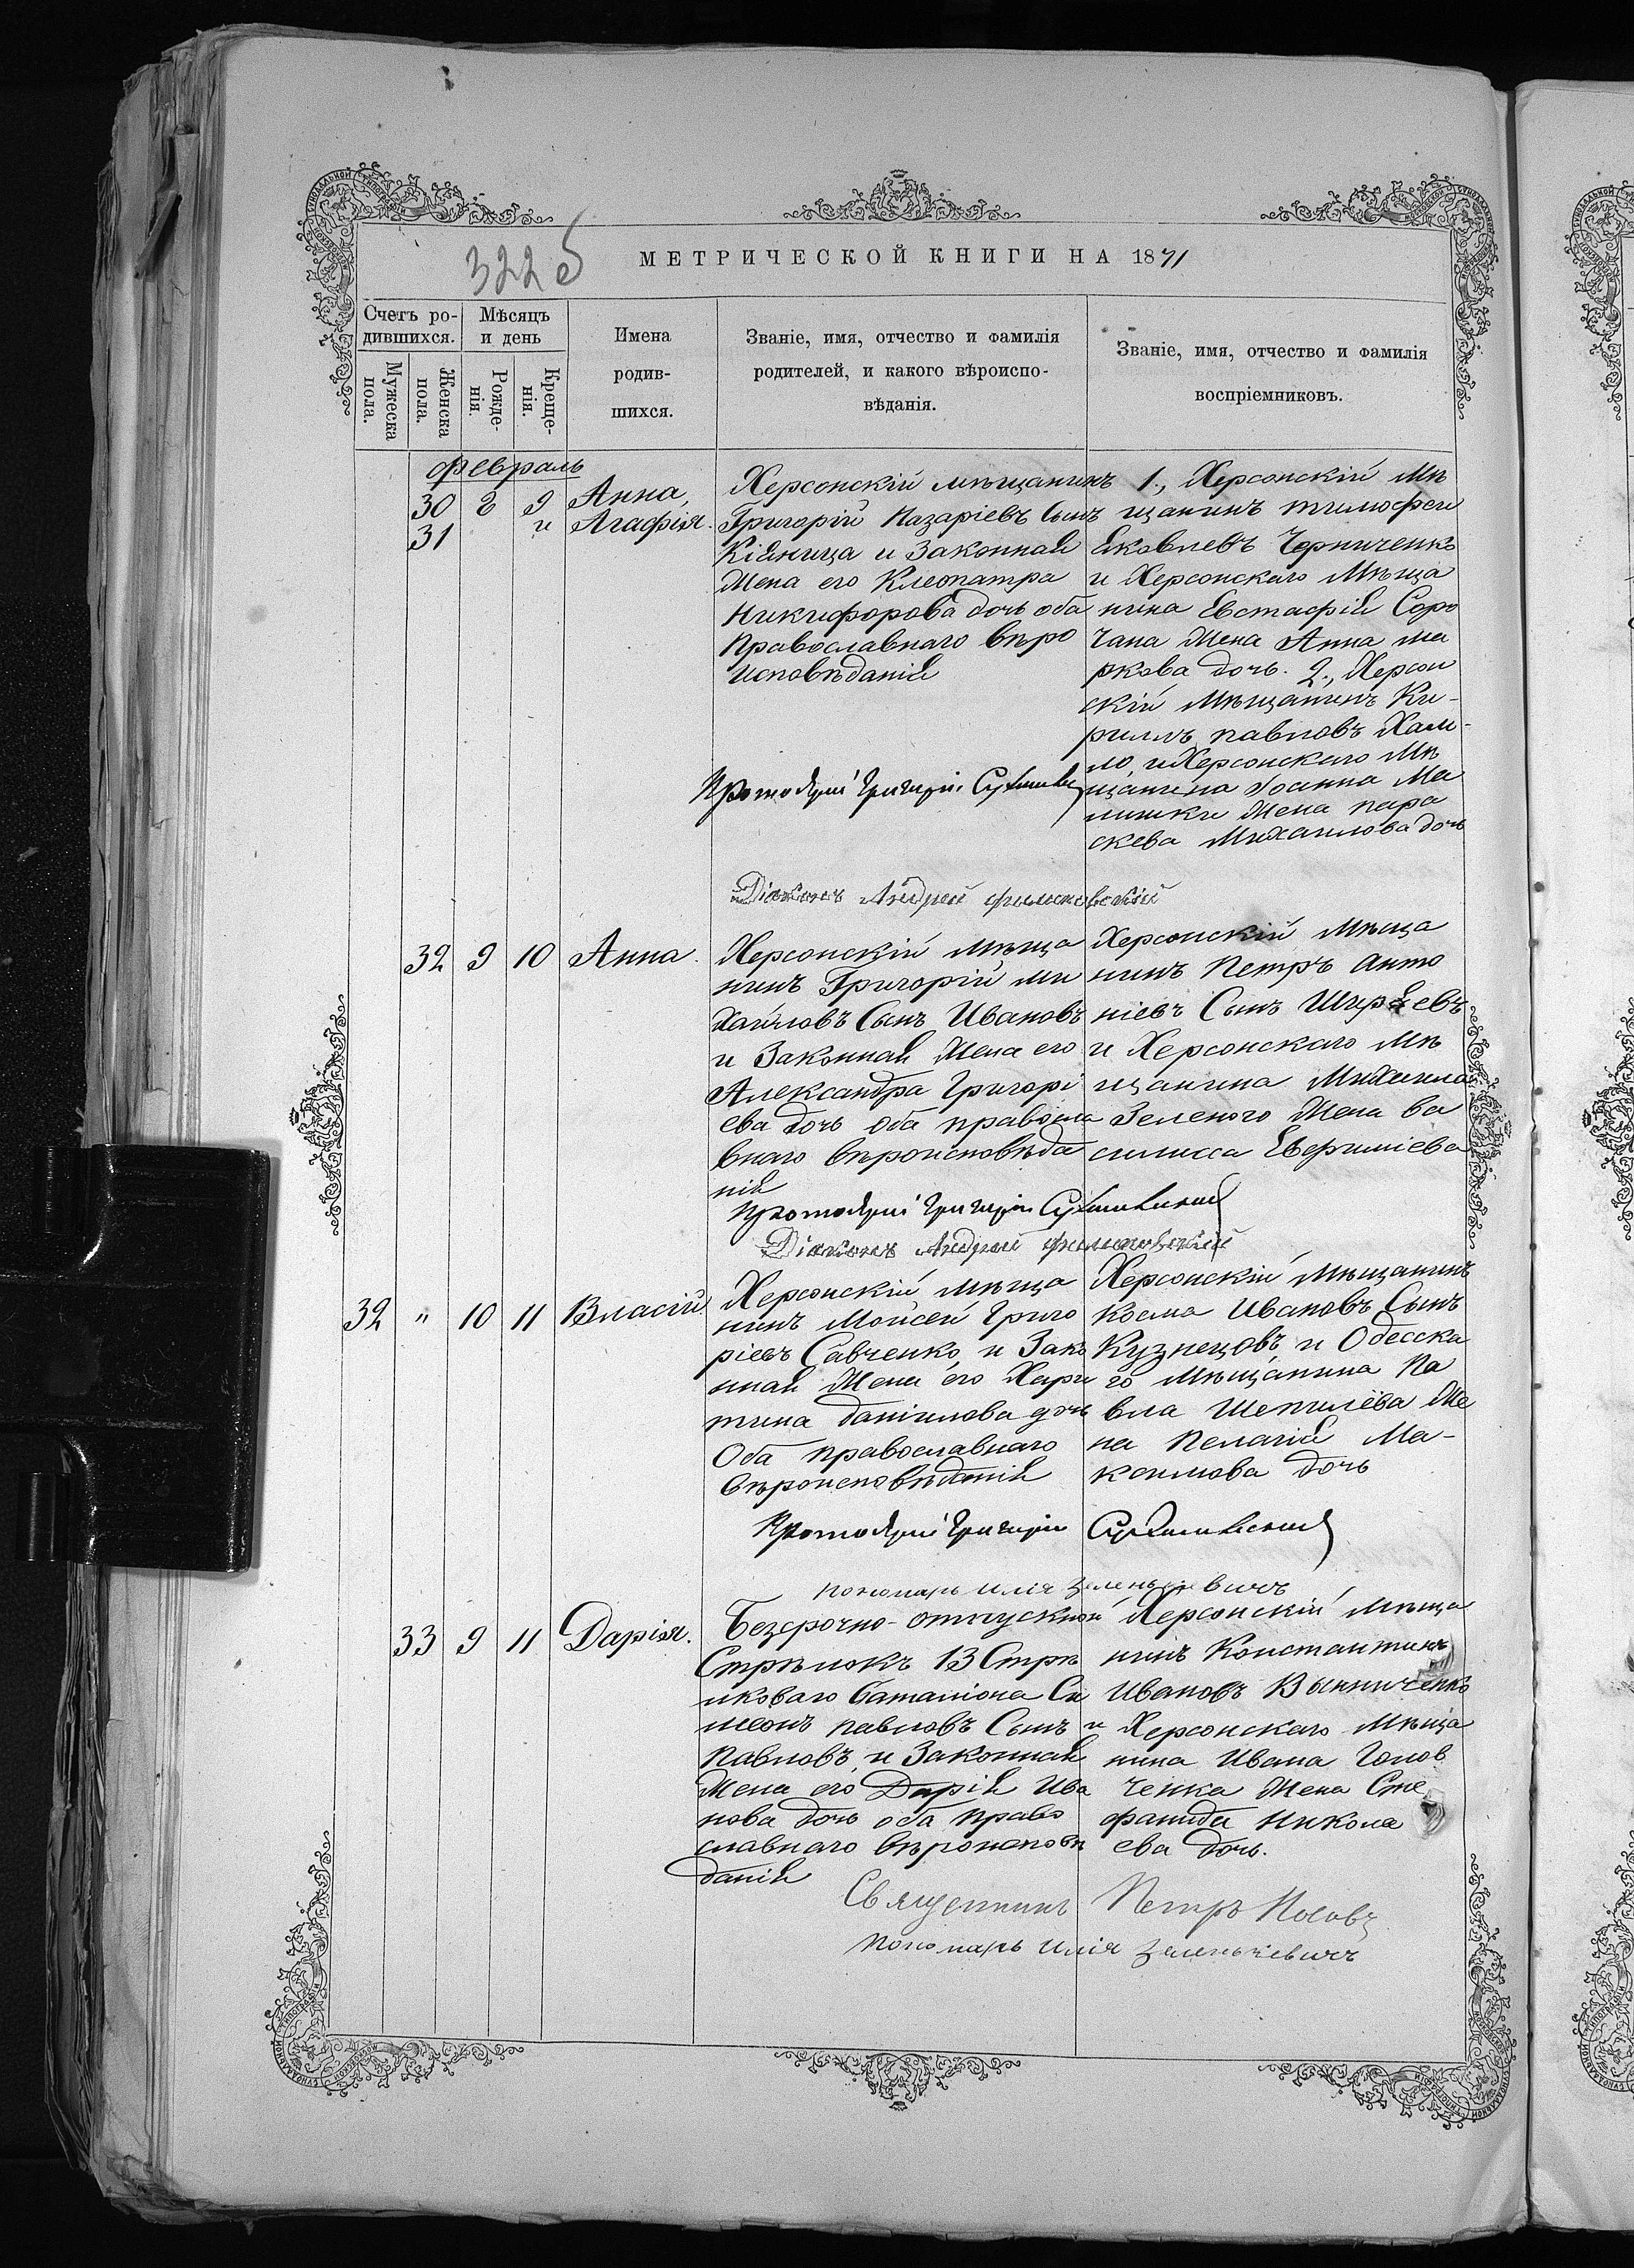 322 б
МЕТРИЧЕСКОЙ КНИГИ НА 1871
Счетъ ро-
дившихся.
Мужеска
пола.
Женска
пола.
Мѣсяцъ
и день
Рожде-
нія.
Креще-
нія.
Имена
родив-
шихся.
Званіе, имя, отчество и фамилія
родителей, и какого вѣроиспо-
вѣданія.
Званіе, имя, отчество и фамилія
воспріемниковъ.
Февраль
30 8 9 Анна,
31 " Агафія.
Херсонскій мѣщанинъ
Григорій Назаріевъ Сынъ
и Законная
Жена его Клеопатра
Никифорова дочь оба
Православнаго вѣро
исповѣданія
1., Херсонскій мѣ
щанинъ тимофеи
Яковлевъ Черниченко
и Херсонскаго Мѣща
нина Евстафія Соро
чана Жена Анна ма
ркова дочь. 2., Херсон
скій Мѣщанинъ Ки-
риллъ павловъ Хам-
ло и Херсонскаго Мѣ
щанина Іоанна Ма
лишки Жена пара
скева Михаилова дочь
Протоіерей Григорій
Діаконъ Андрей
32 9 10 Анна.
Херсонскій Мѣща
нинъ Григорій ми
хаиловъ Сынъ Ивановъ
и Законная Жена его
Александра Григорі
ева дочь оба правосла
внаго вѣроисповѣда
нія
Херсонскій Мѣща
нинъ Петръ Анто
ніевъ Сынъ Ширяевъ
и Херсонскаго Мѣ
щанина Михаила
Зеленого Жена ва
силисса Евфиміева
Протоіерей Григорій
Діаконъ Андрей
32 " 10 11 Власій
Херсонскій мѣща
нинъ Моисей Григо
ріевъ Савченко и Зако
нная Жена его Хари
тина даніилова дочь
Оба православнаго
вѣроисповѣданія
Херсонскій Мѣщанинъ
Косма Ивановъ Сынъ
Кузнецовъ и Одесска
го Мѣщанина Па
вла Шепилёва Же
на Пелагія Ма-
ксимова дочь
Протоіерей Григорій
пономарь Илія Зеленькевичъ
33 9 11 Дарія.
Безсрочно-отпускной
Стрѣлокъ 13 Стрѣ
лковаго баталіона Си
меонъ павловъ Сынъ
Павловъ, и Законная
Жена его Дарія Ива
нова дочь оба право
славнаго вѣроисповѣ
данія
Херсонскій Мѣща
нинъ Константинъ
Ивановъ Винниченко
и Херсонскаго Мѣща
нина Ивана Голов
ченка Жена Сте
фанида Никола
ева дочь.
Священникъ Петръ Носовъ
пономарь Илія Зеленькевичъ